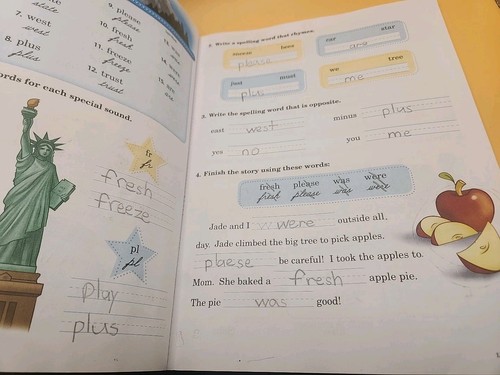 state
7. west
west
8. plus
plus
9. please
please
10. fresh
fresh
11. freeze
freeze
12. trust
trust
ords for each special sound.
fr
fr
fresh
freeze
pl
pl
play
plus
2. Write a spelling word that rhymes.
sneeze bees
please
car star
are
just must
plus
we tree
me
3. Write the spelling word that is opposite.
east west
minus plus
yes no
you me
4. Finish the story using these words:
fresh please was were
fresh please was were
Jade and I were outside all
day. Jade climbed the big tree to pick apples.
plaese be careful! I took the apples to
Mom. She baked a fresh apple pie.
The pie was good!